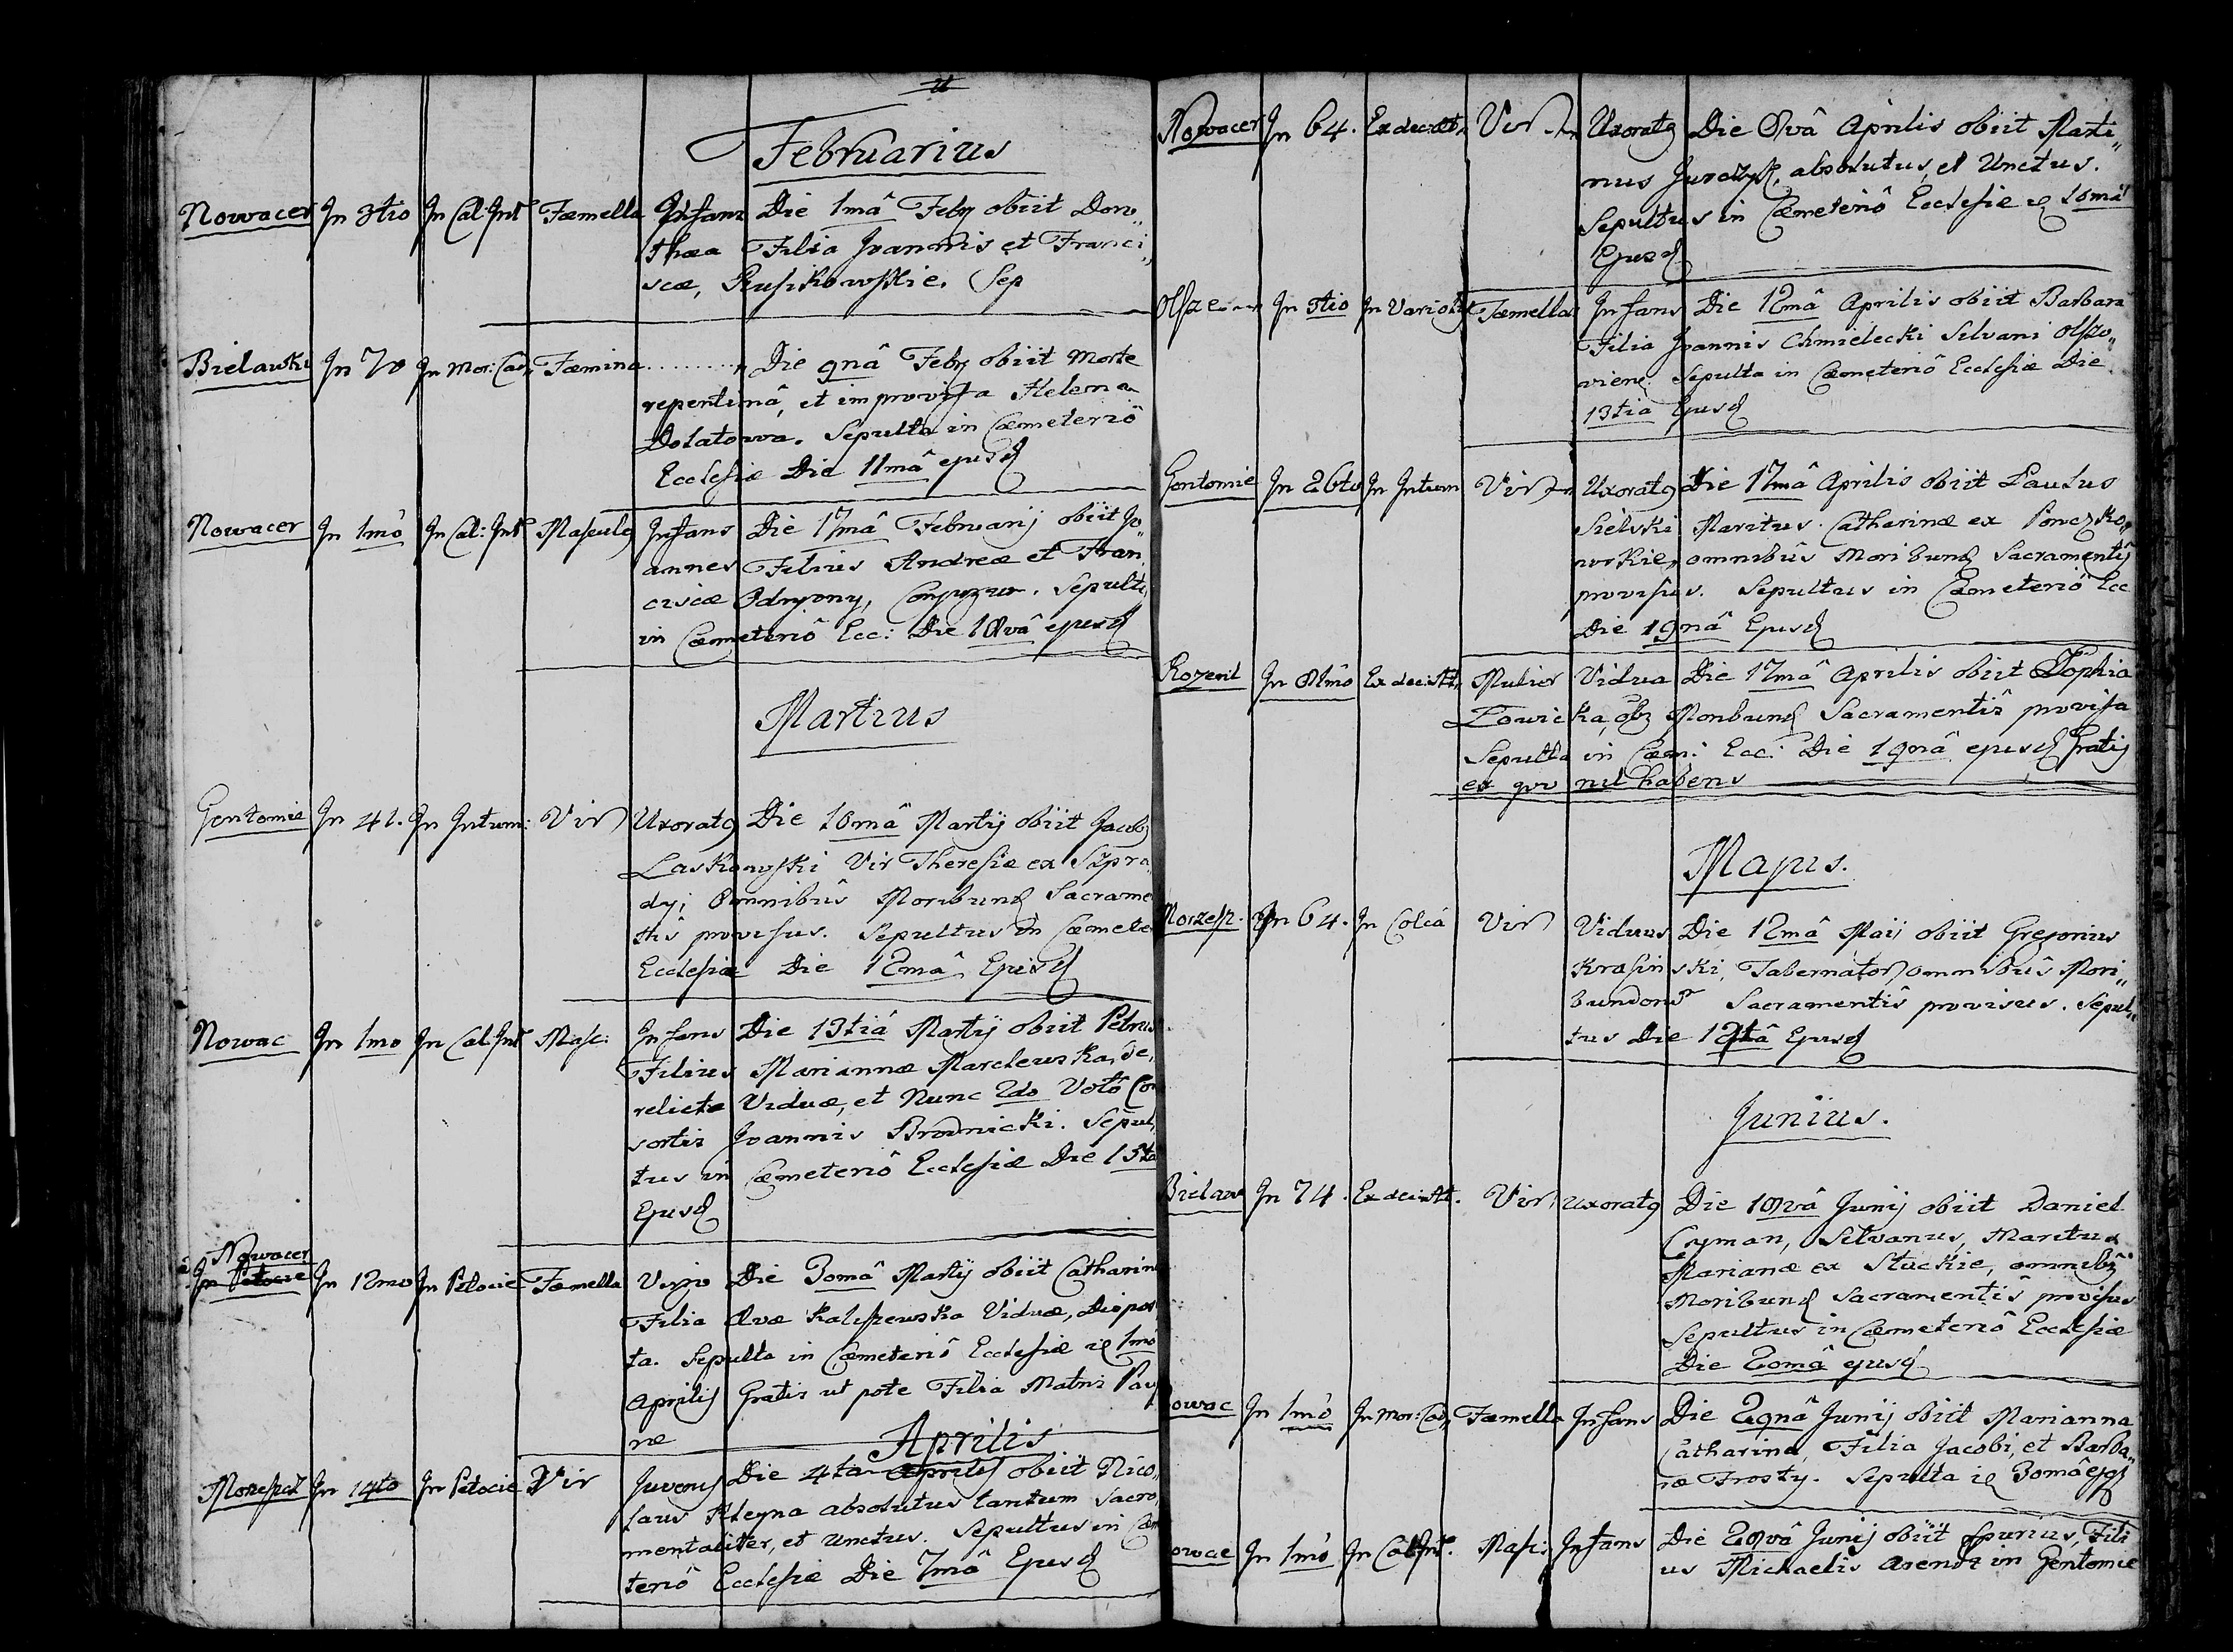 Februarius
Nowacer In 3tio In Cal: Int Fæmella Infans Die 1mâ Febr obiit Doro„
thæa Filia Joannis et Franci„
scæ, Rusikowskie. Sep
Bielawki In 70 In Mor: Cad. Fæmina Die 9nâ Febr obiit Morte
repentinâ, et improvisa Helena
Dolatowa. Sepulta in Cæmeteriô
Ecclesiæ Die 11mâ ejusd
Nowacer In 1mô In Cal: Int Masculg Infans Die 17mâ Februarij obiit Jo„
annes Filius Andreæ et Fran„
ciscæ Odryony, Conjugum. Sepult
in Cæmeteriô Ecc: Die 18vâ ejusd
Martius
Gentomie In 41. In Intum: Vir Uxoratg Die 10mâ Martij obiit Jacobg
Laskowski Vir Theresiæ ex Szpra„
dy; Omnibûs Moribund Sacrame
tîs provisus. Sepultus in Cæmete
Ecclesiæ Die 12mâ Ejusd
Nowac In 1mo In Cal: Int Masc: Infans Die 13tiâ Martij obiit Petrus
Filius Mariannæ Marclewska, de„
relictæ Viduæ, et Nunc 2do Votô Con
sortis Joannis Brodnicki. Sepul„
tus in Cæmeteriô Ecclesiæ Die 15ta
Ejusd
Nowacer
In Petocie In 12mo In Petocie Fæmella Virgo Die 30mâ Martij obiit Catharin
Filia Evæ Kaliszewska Viduæ, Dispos„
ta. Sepulta in Cæmeteriô Ecclesiæ id 1mô
Aprilis Gratis ut pote Filia Matris Pau
ræ
Aprilis
Morzescz In 14to In Petocie Vir Juvenis Die 4ta Aprilis obiit Nico„
laus Klegna absolutus tantum Sacra„
mentaliter, et Unctus. Sepultus in Cæm
teriô Ecclesiæ Die 7mâ Ejusd
Nowacer In 64. Ex decræt. Vir Uxoratg Die 8vâ Aprilis obiit Marti„
nus Jurczyk, absolutus, et Unctus.
Sepultus in Cæmeteriô Ecclesiæ id 10mâ
Ejusd
Olsze In 3tio In Variolis Fæmella Infans Die 12mâ Aprilis obiit Barbara
Filia Joannis Chmielecki Silvani Olszo„
viens. Sepulta in Cæmeteriô Ecclesiæ Die
13tiâ Ejusd
Gentomie In 26to In Intum Vir Uxoratg Die 17mâ Aprilis obiit Paulus
Sielski Maritus Catharinæ ex Ponczko„
wskie, omnibûs Moribund Sacramentîs
provisus. Sepultus in Cæmeteriô Ecc
Die 19nâ Ejusd
Rozent In 81mô Ex deci: Æt. Mulier Vidua Die 17mâ Aprilis obiit Sophia
Lowicka, obz Moribund Sacramentîs provisa
Sepulta in Cæm: Ecc: Die 19nâ ejusd Gratis
ex quo nil habens
Majus.
Morzesz. In 64. In Colcâ Vir Viduus Die 12mâ Maij obiit Gregorius
Krasinski, Tabernator, omnibûs Mori„
bundorum Sacramentîs provisus. Sepul„
tus Die 14tâ Ejusd
Junius.
Bielaw In 74. Ex deci: Æt. Vir Uxoratg Die 18vâ Junij obiit Daniel
Cyman, Silvanus, Maritus
Marianæ ex Stuckie, omnibg
Moribund Sacramentîs provisus
Sepultus in Cæmeteriô Ecclesiæ
Die 20mâ ejusd
owac In 1mô In Mor: Cad. Fæmella Infans Die 29nâ Junij obiit Marianna
Catharina, Filia Jacobi, et Barba„
ræ Frosty. Sepulta id 30mâ ejgd
owae In 1mô In Cal: Int. Masc: Infans Die 28vâ Junij obiit Spurius, Fili
us Michaelis Arendt in Gentomie